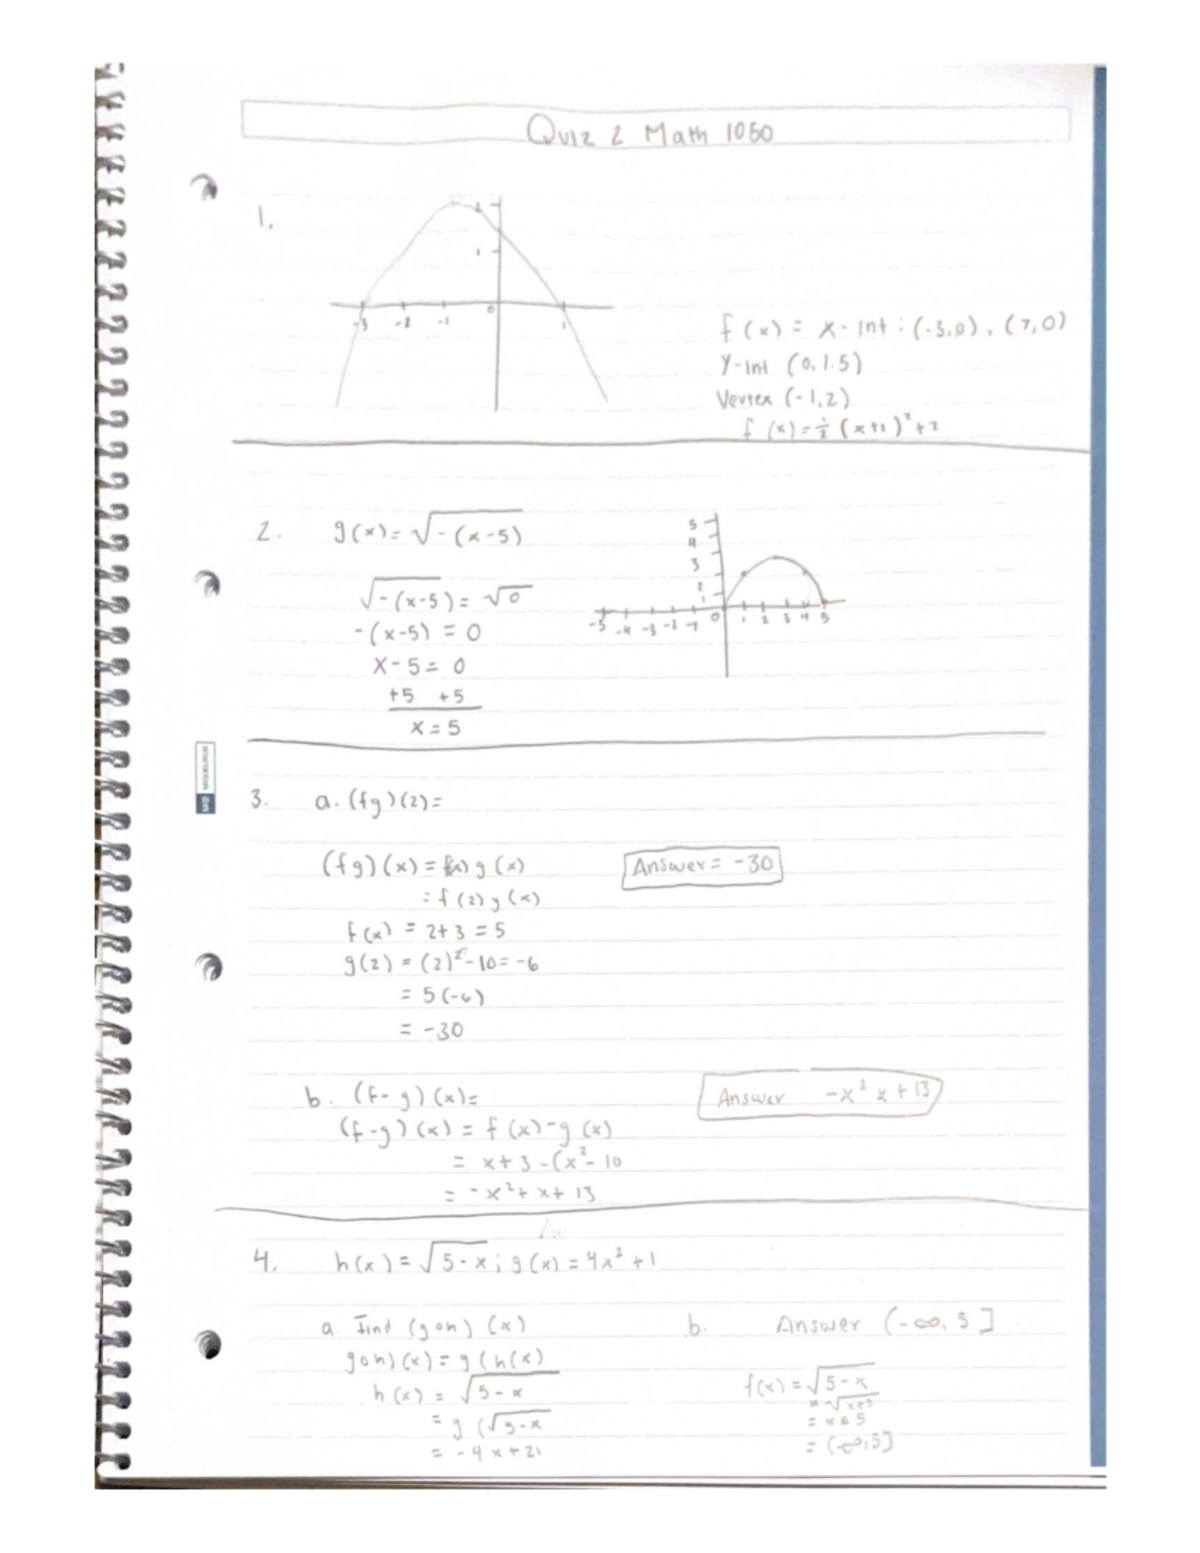 Quiz 2 Math 1050
1.
2
1
-3 -2 -1 0 1
f(x) = x-int : (-3,0), (7,0)
Y-int (0, 1.5)
Vertex (-1,2)
f(x) = ½ (x+1)² + 2
2. g(x) = √-(x-5)
√-(x-5) = √0
-(x-5) = 0
x-5 = 0
+5 +5
x = 5
5
4
3
2
1
-5 -4 -3 -2 -1 0 1 2 3 4 5
3. a. (fg)(2) =
(fg)(x) = f(x) g(x)
= f(2) g(x)
f(x) = 2+3 = 5
g(2) = (2)² - 10 = -6
= 5(-6)
= -30
Answer = -30
b. (f-g)(x) =
(f-g)(x) = f(x) - g(x)
= x+3 - (x² - 10
= -x² + x + 13
Answer -x² x + 13
4. h(x) = √5-x ; g(x) = 4x² + 1
a. Find (goh)(x)
goh)(x) = g(h(x)
h(x) = √5-x
= g (√5-x
= -4x+21
b. Answer (-∞, 5]
f(x) = √5-x
= (-∞,5]
MOLESTAR